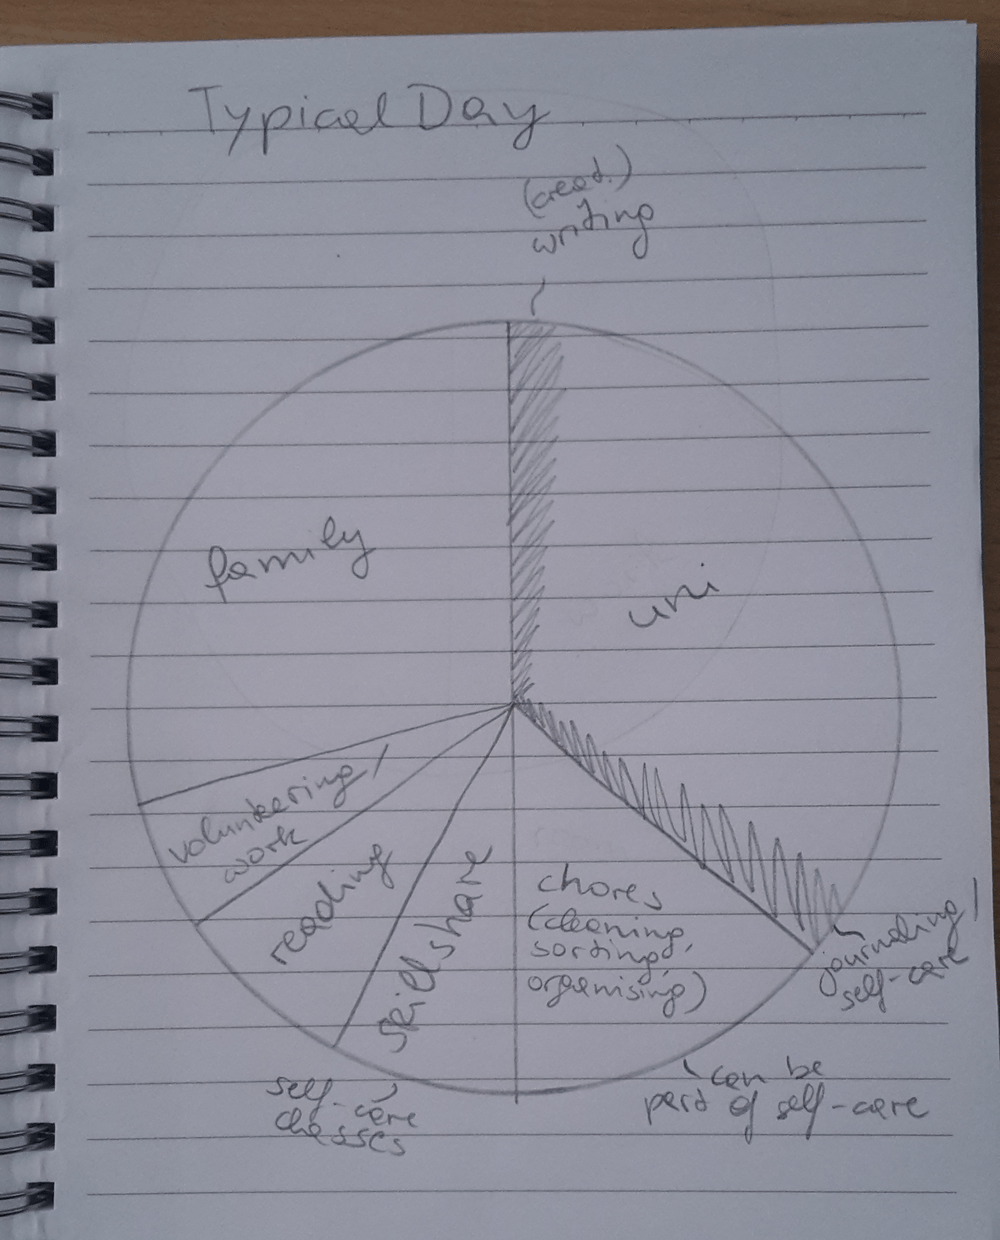 Typical Day
(creat.)
writing
family
uni
volunteering/
work
reading
skillshare
chores
(cleaning,
sorting,
organising)
journaling/
self-care
self-care
classes
can be
part of self-care